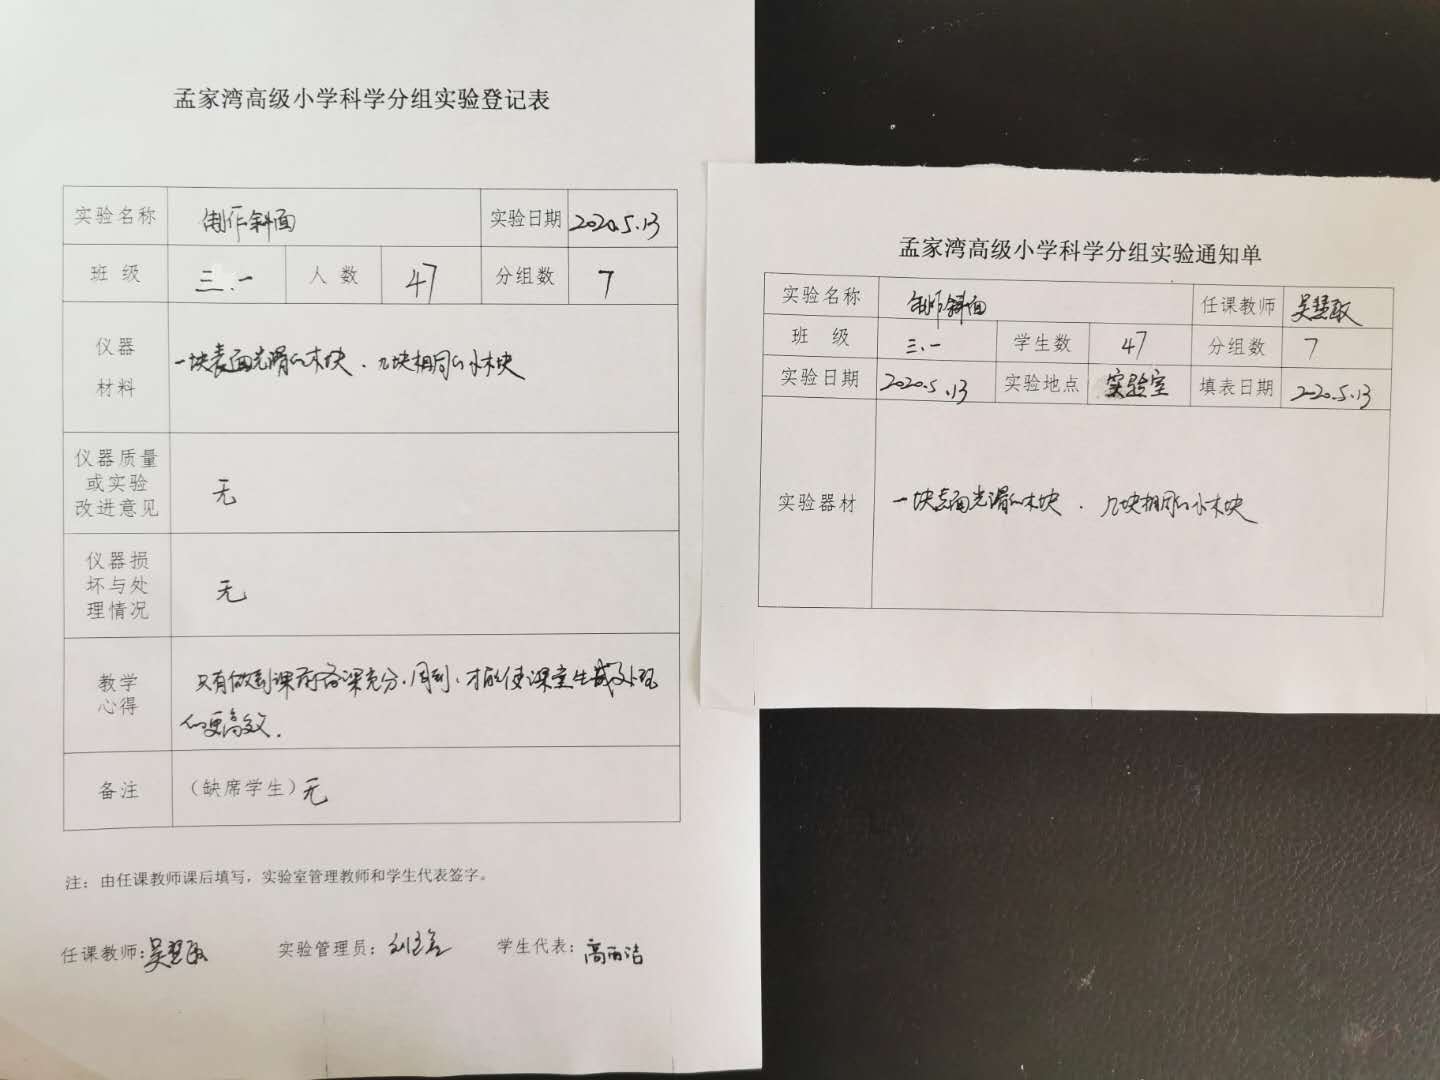 孟家湾高级小学科学分组实验登记表
实验名称 制作斜面 实验日期 2020.5.13
班 级 三.一 人 数 47 分组数 7
仪器
材料
一块表面光滑的木块、几块相同的小木块
仪器质量
或实验
改进意见
无
仪器损
坏与处
理情况
无
教学
心得
只有做到课前备课充分、周到,才能使课堂生成处理
的更高效.
备注 (缺席学生)无
注: 由任课教师课后填写,实验室管理教师和学生代表签字。
任课教师:吴慧敏 实验管理员: 学生代表:高雨洁
孟家湾高级小学科学分组实验通知单
实验名称 制作斜面 任课教师 吴慧敏
班 级 三.一 学生数 47 分组数 7
实验日期 2020.5.13 实验地点 实验室 填表日期 2020.5.13
实验器材 一块表面光滑的木块、几块相同的小木块